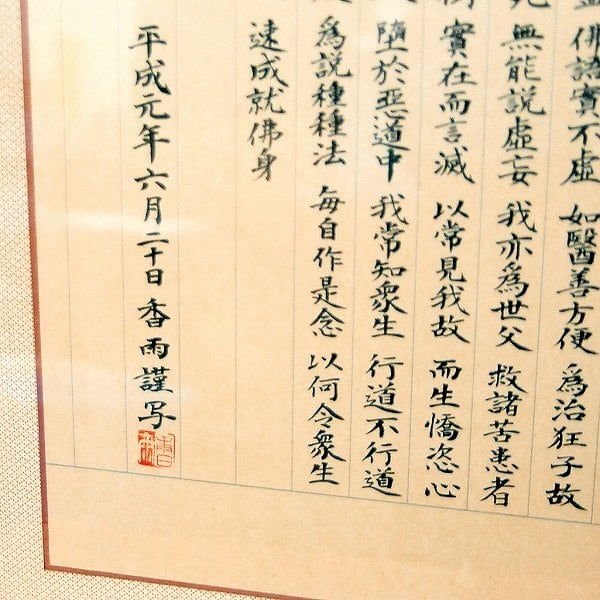 佛語實不虛 如醫善方便 爲治狂子故
無能說虛妄 我亦爲世父 救諸苦患者
實在而言滅 以常見我故 而生憍恣心
墮於惡道中 我常知衆生 行道不行道
爲說種種法 每自作是念 以何令衆生
速成就佛身
平成元年六月二十日香雨謹写